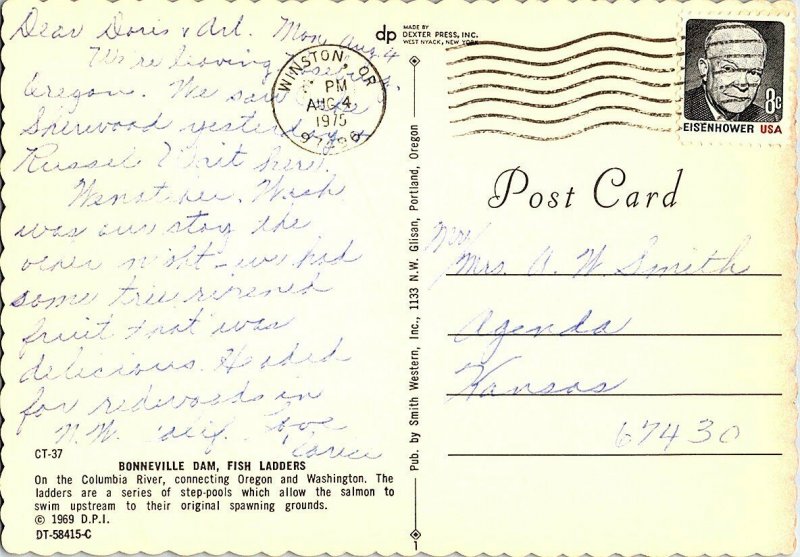 Dear Doris & Art. Mon, Aug. 4
We're leaving Roseburg,
Oregon. We saw the
Sherwood yesterday
Russel Unit here.
Wenatchee, Wash
was our stay the
other night - we had
some tree ripened
fruit that was
delicious. Headed
for redwoods in
N.W. Calif. Love
CT-37
BONNEVILLE DAM, FISH LADDERS
On the Columbia River, connecting Oregon and Washington. The
ladders are a series of step-pools which allow the salmon to
swim upstream to their original spawning grounds.
© 1969 D.P.I.
DT-58415-C
dp MADE BY
DEXTER PRESS, INC.
WEST NYACK, NEW YORK
WINSTON, OR
PM
AUG 4
1975
97496
Pub. by Smith Western, Inc., 1133 N.W. Glisan, Portland, Oregon
1
8c
EISENHOWER USA
Post Card
Mr/
Mrs. A. W Smith
Agenda
Kansas
67430